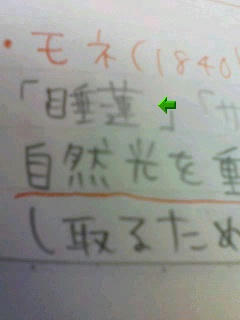 ・モネ(1840
「睡蓮」「
自然光を重
し取るため